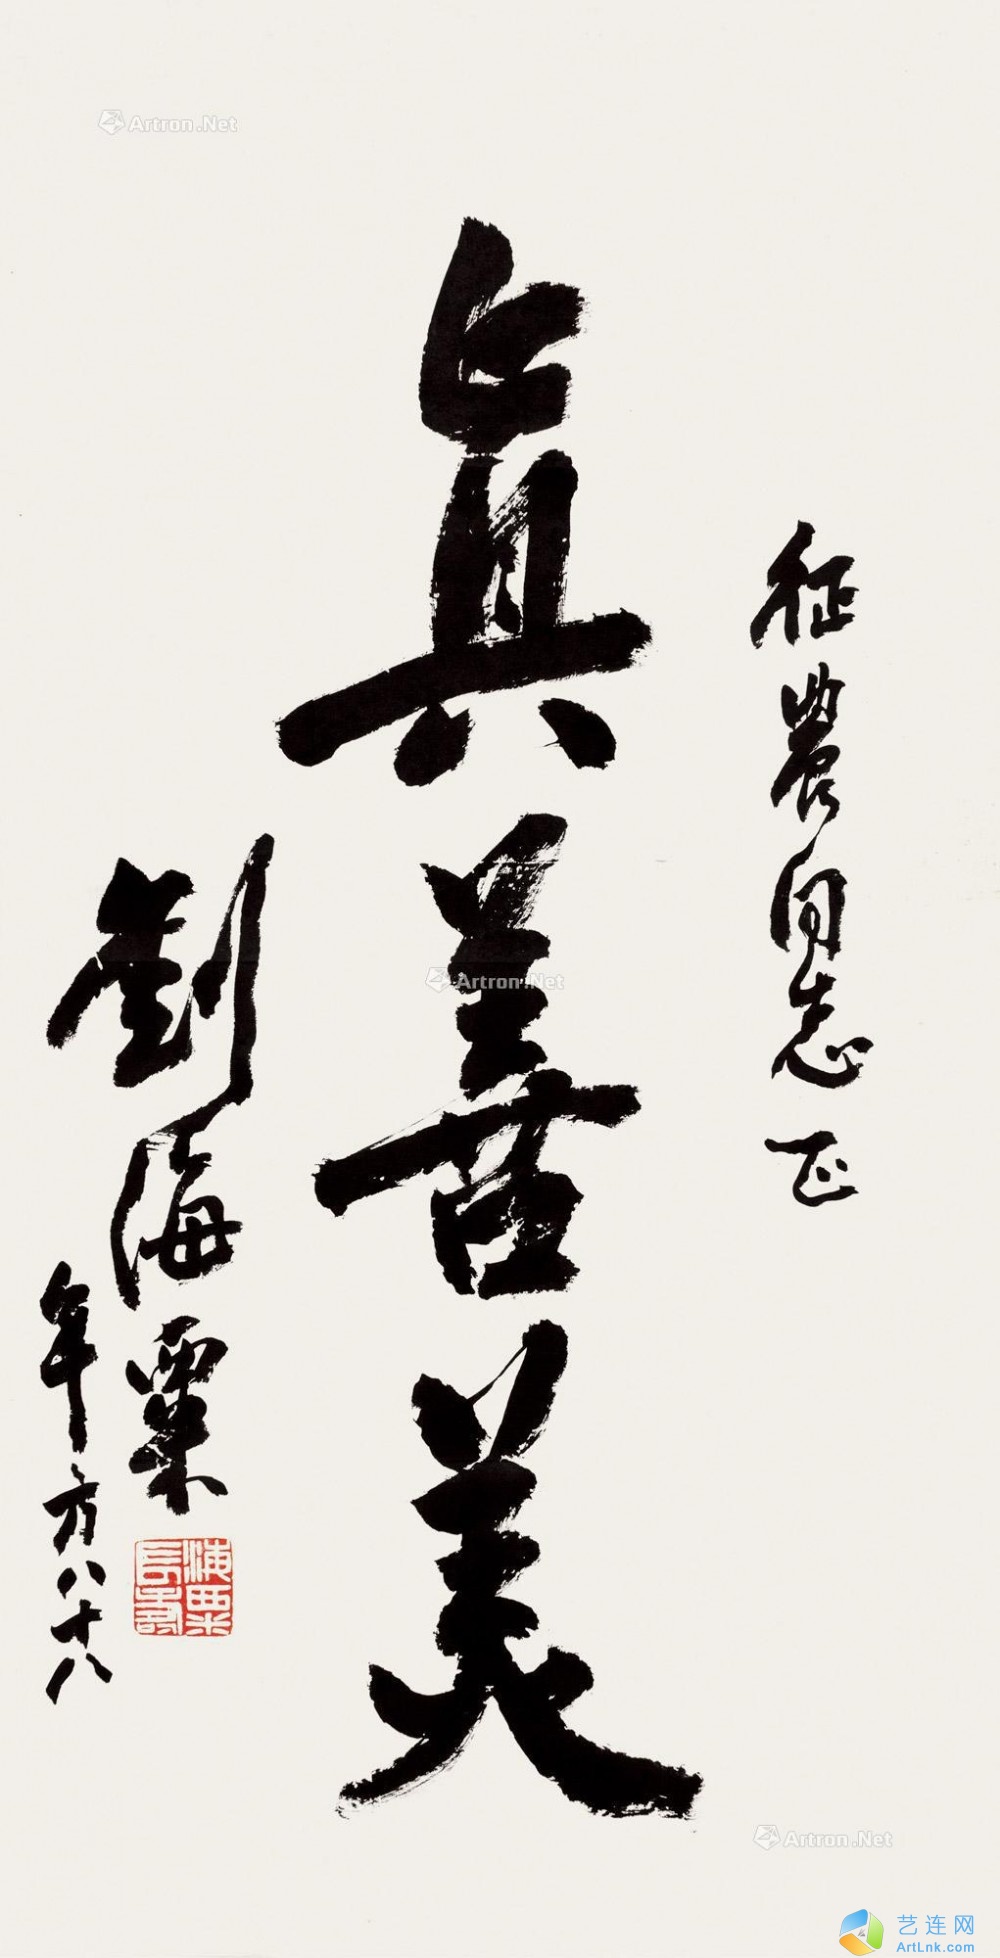 征農同志正
真善美
劉海粟
年方八十八
海粟長壽
Artron.Net
Artron.Net
Artron.Net
艺连网
ArtLnk.com